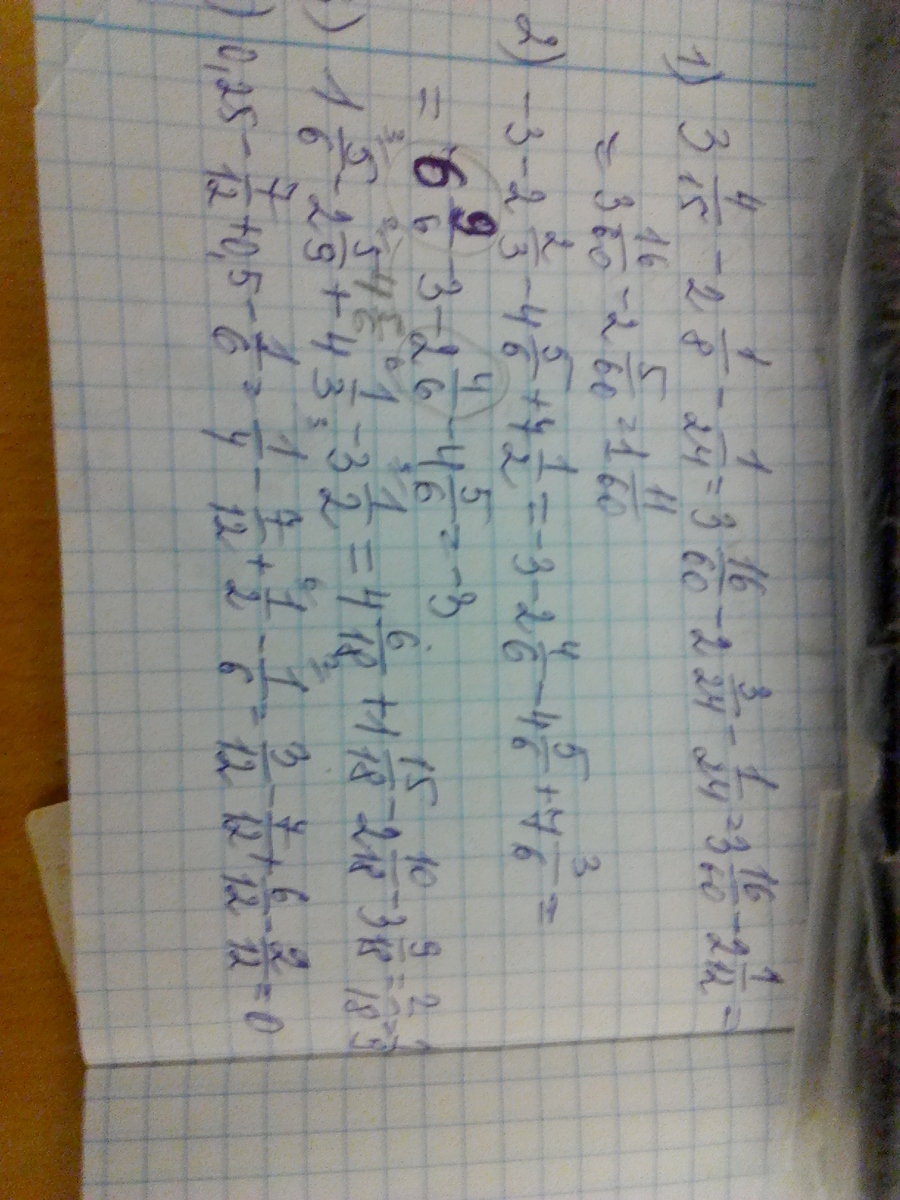 1) 3 4/15 - 2 1/8 - 1/24 = 3 16/60 - 2 3/24 - 1/24 = 3 16/60 - 2 1/12 =
= 3 16/60 - 2 5/60 = 1 11/60
2) -3 - 2 2/3 - 4 5/6 + 7 1/2 = -3 - 2 4/6 - 4 5/6 + 7 3/6 =
= 6 9/6 - 3 - 2 4/6 - 4 5/6 = -3
1 5/6 - 2 5/9 + 4 1/3 - 3 1/2 = 4 6/18 + 1 15/18 - 2 10/18 - 3 9/18 = 2/18 = 1/9
0,25 - 7/12 + 0,5 - 1/6 = 1/4 - 7/12 + 1/2 - 1/6 = 3/12 - 7/12 + 6/12 - 2/12 = 0